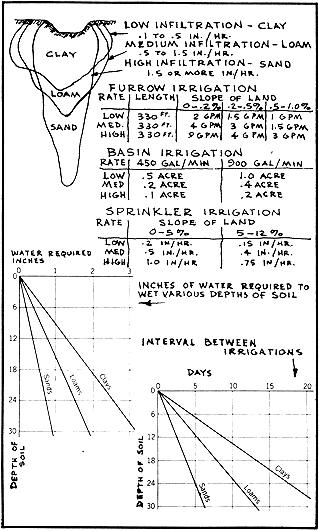 LOW INFILTRATION - CLAY
.1 TO .5 IN./HR.
MEDIUM INFILTRATION - LOAM
.5 TO 1.5 IN./HR.
HIGH INFILTRATION - SAND
1.5 OR MORE IN./HR.
CLAY
LOAM
SAND
FURROW IRRIGATION
RATE LENGTH SLOPE OF LAND
0-.2% .2-.5% .5-1.0%
LOW 330 FT. 2 GPM 1.5 GPM 1 GPM
MED. 330 FT. 4 GPM 3 GPM 1.5 GPM
HIGH 330 FT. 9 GPM 4 GPM 3 GPM
BASIN IRRIGATION
RATE 450 GAL/MIN 900 GAL/MIN
LOW .5 ACRE 1.0 ACRE
MED .2 ACRE .4 ACRE
HIGH .1 ACRE .2 ACRE
SPRINKLER IRRIGATION
RATE SLOPE OF LAND
0-5% 5-12%
LOW .2 IN/HR. .15 IN/HR.
MED .5 IN/HR. .4 IN./HR.
HIGH 1.0 IN/HR. .75 IN/HR.
WATER REQUIRED
INCHES
0 1 2 3
0
6
12
18
24
30
Sands
Loams
Clays
DEPTH OF SOIL
INCHES OF WATER REQUIRED TO
WET VARIOUS DEPTHS OF SOIL
INTERVAL BETWEEN
IRRIGATIONS
DAYS
0 5 10 15 20
0
6
12
18
24
30
Sands
Loams
Clays
DEPTH OF SOIL